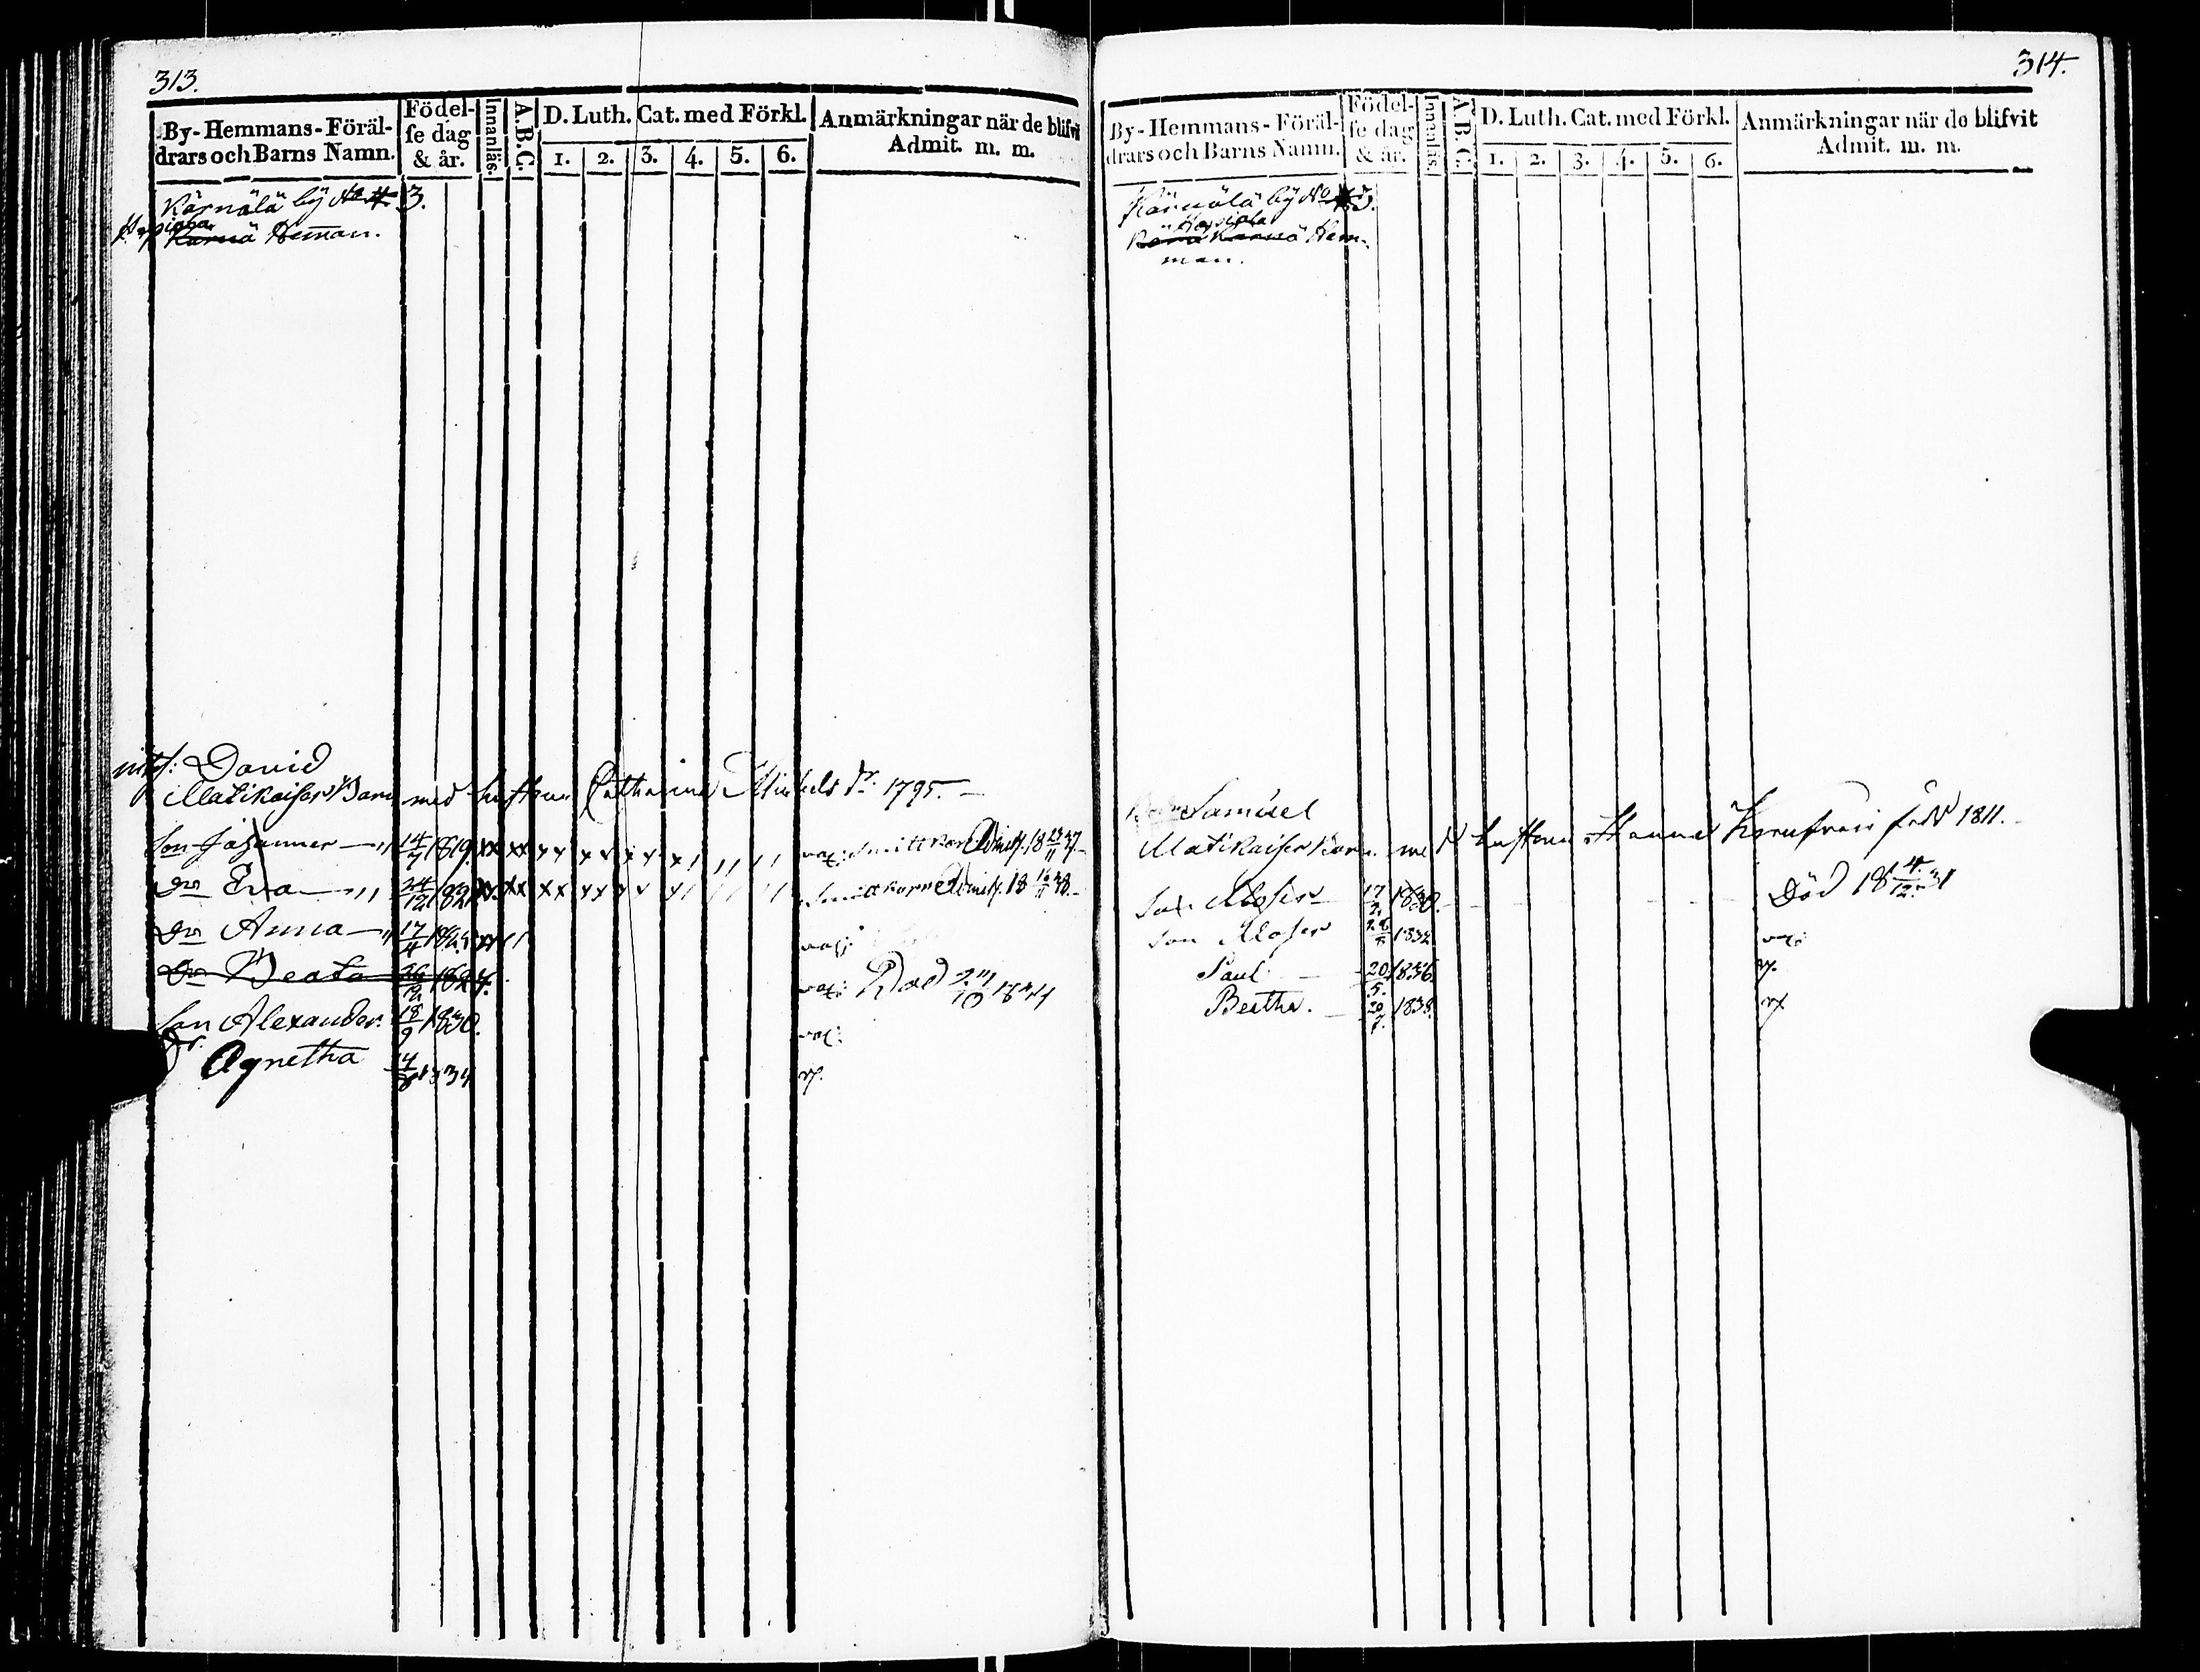 313.
By-Hemmans-Föräl-
drars och Barns Namn.
Födel-
se dag
& år.
Innanläs.
A.B.C.
D. Luth. Cat. med Förkl.
1. 2. 3. 4. 5. 6.
Anmärkningar när de blifvit
Admit. m. m.
Kärnälä by No 4. 3.
Kärnä Heman.
David
Matikaisar Barn med hustrun Catharina Michels dr. 1795.
Son Johannes 14/7 1819 xx xx Admitt. 18 37
Dr Eva 24/12 1821 xx xx Admitt. 18 38
Dr Anna 17/4 vac:
Dr Beata 1824. vac: Död 1834
Son Alexander 18/9 1830. vac:
Dr. Agnetha 1834
314.
By-Hemmans-Föräl-
drars och Barns Namn.
Födel-
se dag
& år.
Innanläs.
A.B.C.
D. Luth. Cat. med Förkl.
1. 2. 3. 4. 5. 6.
Anmärkningar när de blifvit
Admit. m. m.
Kärnälä by No 3.
Kärnä Hem-
man.
Samuel
Matikaiser Barn med hustrun Hanna född 1811.
Son Moses 17/2 1830. Död 18 4/12 31
Son Moses 1832 vac:
Paul 20/5 1836
Beatha. 20/7 1838.